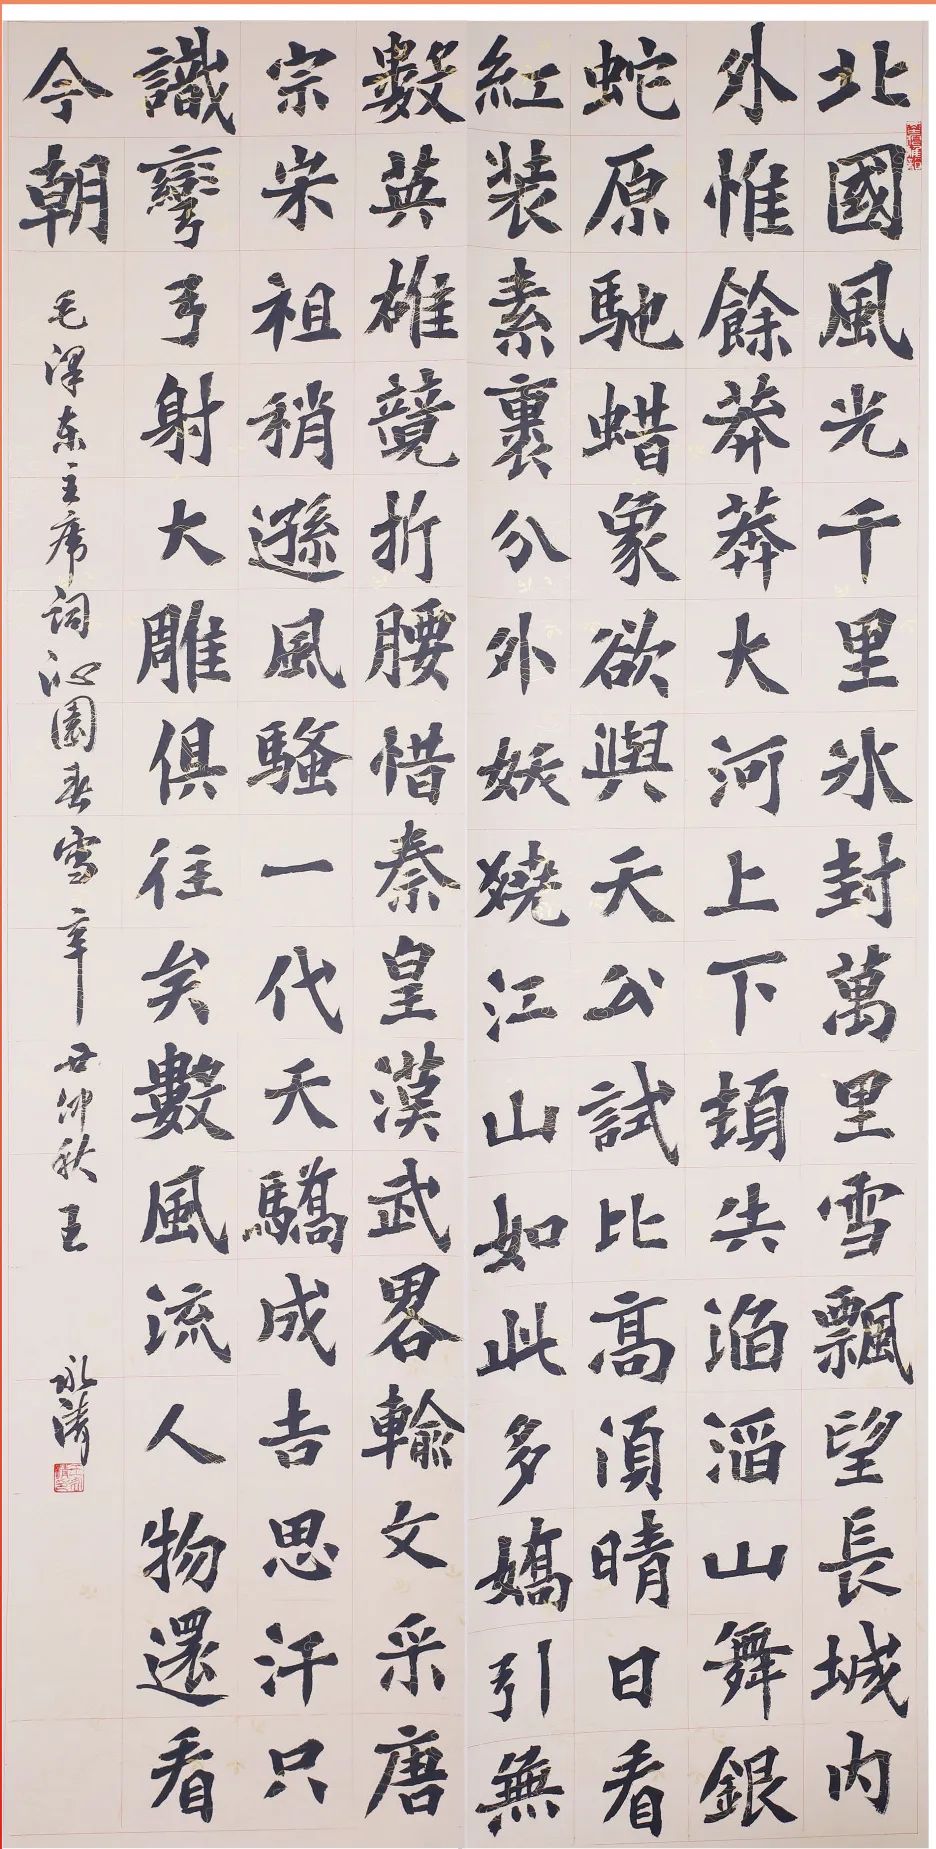 北國風光千里冰封萬里雪飄望長城内
外惟餘莽莽大河上下頓失滔滔山舞銀
蛇原馳蜡象欲與天公試比高須晴日看
紅裝素裹分外妖嬈江山如此多嬌引無
數英雄競折腰惜秦皇漢武畧輸文采唐
宗宋祖稍遜風騷一代天驕成吉思汗只
識彎弓射大雕俱往矣數風流人物還看
今朝
毛澤东主席詞沁園春雪辛丑仲秋王永清